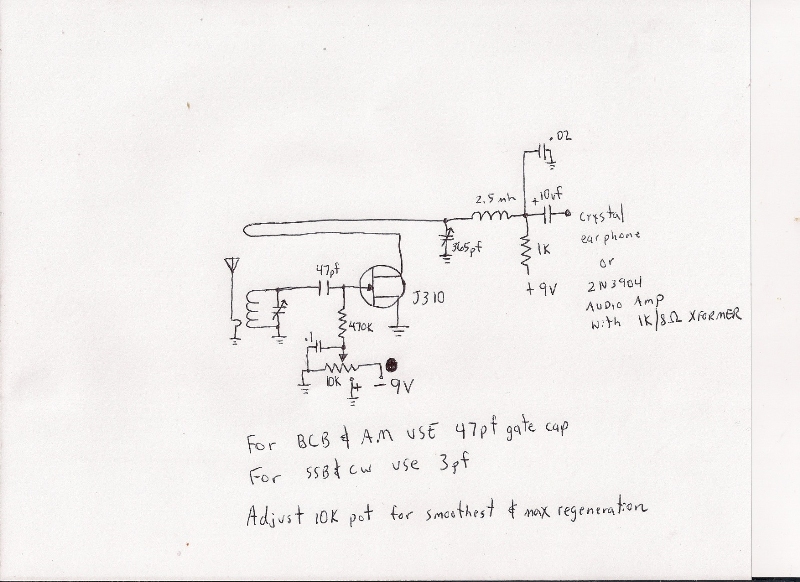 .02
2.5 mh
+10uf
Crystal
earphone
or
2N3904
AUDIO AMP
With 1K/8Ω XFORMER
365pf
1K
+9V
47pf
J310
470K
.1
10K
+
- 9V
For BCB & AM USE 47pf gate cap
For SSB & CW use 3pf
Adjust 10K pot for smoothest & max regeneration